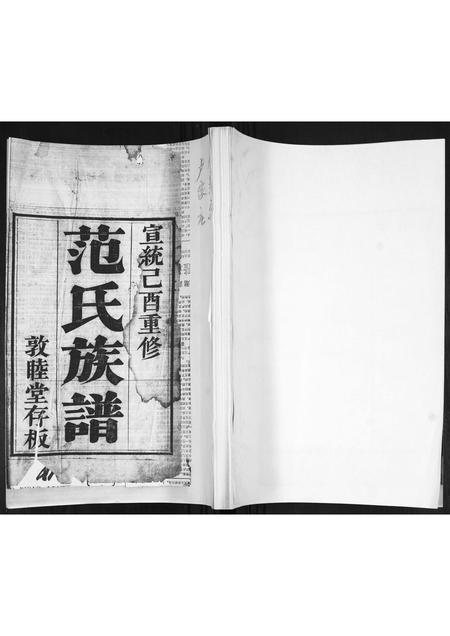 宣統己酉重修
范氏族譜
敦睦堂存板